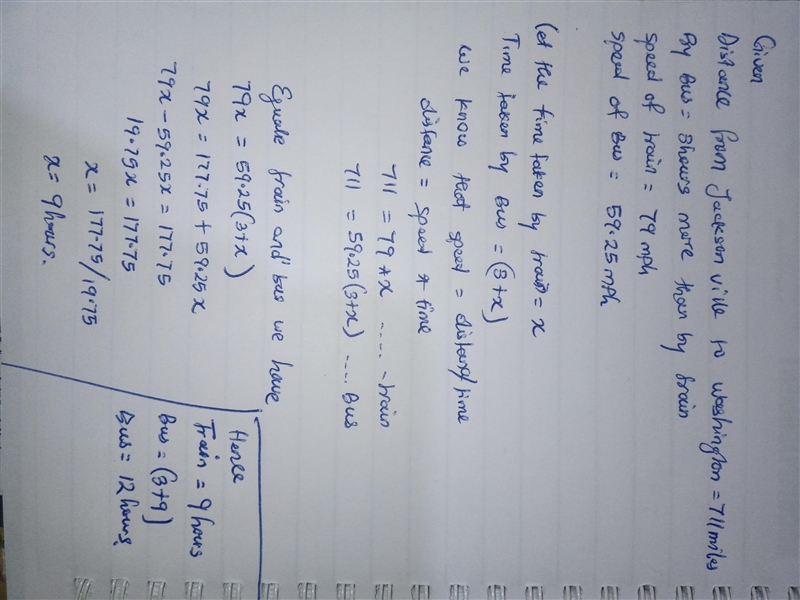 Given
Distance from Jackson ville to Washington = 711 miles
By Bus = 3hours more than by train
Speed of train = 79 mph
Speed of Bus = 59.25 mph
Let the time taken by train = x
Time taken by Bus = (3+x)
We know that speed = distance/time
distance = speed * time
711 = 79 * x ..... - train
711 = 59.25(3+x) .... Bus
Equate train and bus we have
79x = 59.25(3+x)
79x = 177.75 + 59.25x
79x - 59.25x = 177.75
19.75x = 177.75
x = 177.75/19.75
x = 9 hours.
Hence
Train = 9 hours
Bus = (3+9)
Bus = 12 hours